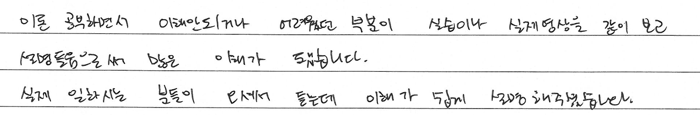 이론 공부하면서 이해안되거나 어려웠던 부분이 실습이나 실제영상을 같이 보고
설명들음으로써 많은 이해가 됐습니다.
실제 일하시는 분들이 오셔서 듣는데 이해가 쉽게 설명해주셨습니다.